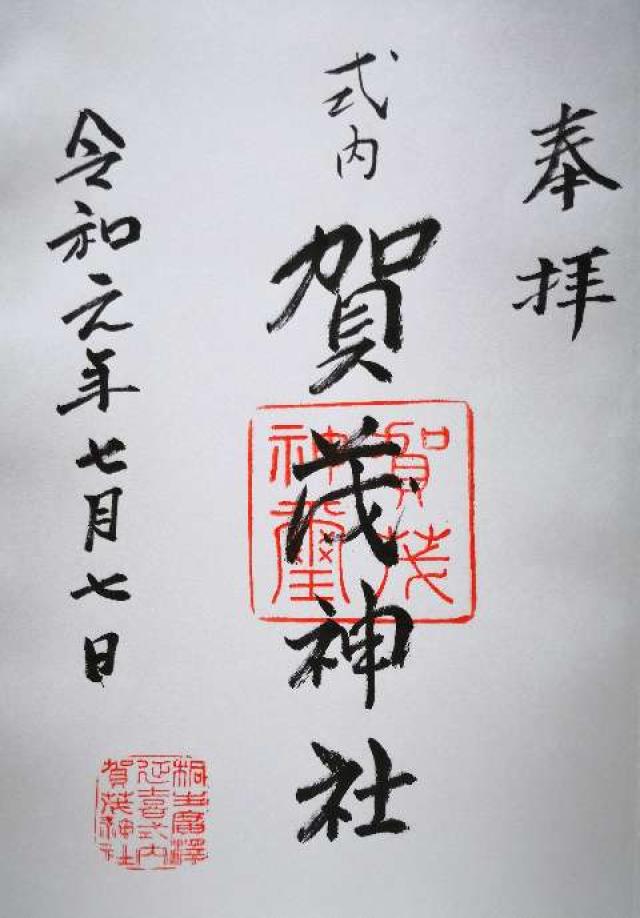 奉拝
式内
賀茂神社
賀茂
神璽
令和元年七月七日
桐生廣澤
延喜式内
賀茂神社